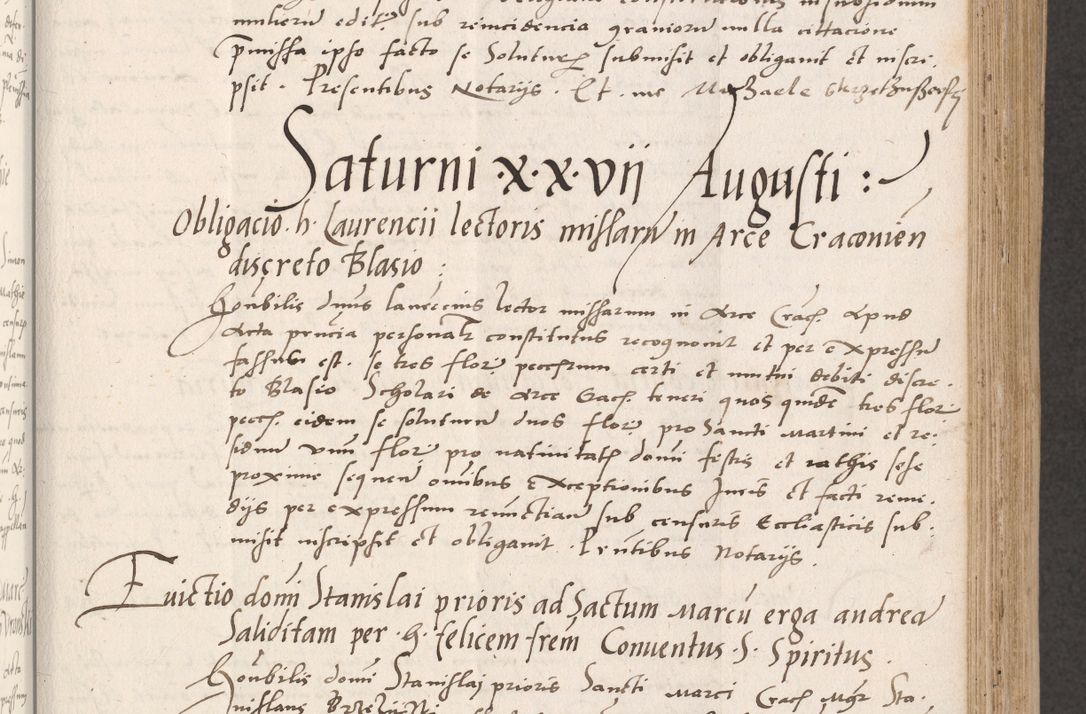 mulierū edit. sub reincidencia graniorū nulla cittacione
p̄missa ipso facto se Soluturū submisit et obligauit et inscri.
psit. Presentibus Notarijs. Et me
Saturni ·x·x·vij Augusti :
Obligacio h. Laurencii lectoris missarū in Arce Cracouień
discreto Blasio :
Honbilis dnus laurēcius lector missarum in Arce Crac̄. Apud
Acta pn̄cia personalr̄ constitutus recognouit et per expressū
fassus est. se tres florˢ pecc̄rum certi et mutui debiti discre.
to Blasio Scholari de Arce Crac̄ teneri quos quidē tres florˢ
pecc̄. eidem se soluturū duos florˢ pro Sancti Martini et re.
siduū vnū florˢ pro natiuitatᵉ domi festis et rathis sese
proxime sequeñ omibus exceptionibus Juris et facti reme.
dijs per expressum renūctiań sub censuris Eccliasticis sub.
misit inscripsit et obligauit. Pn̄tibus Notarijs.
Euictio domi Stanislai prioris ad Sactum Marcū erga andreā
Saliditam per h. felicem frēm Conuentus S. Spiritus.
Honbilis domi Stanislaj prioris Sancti Marci Crac̄ Mgr Sta.
nislaus